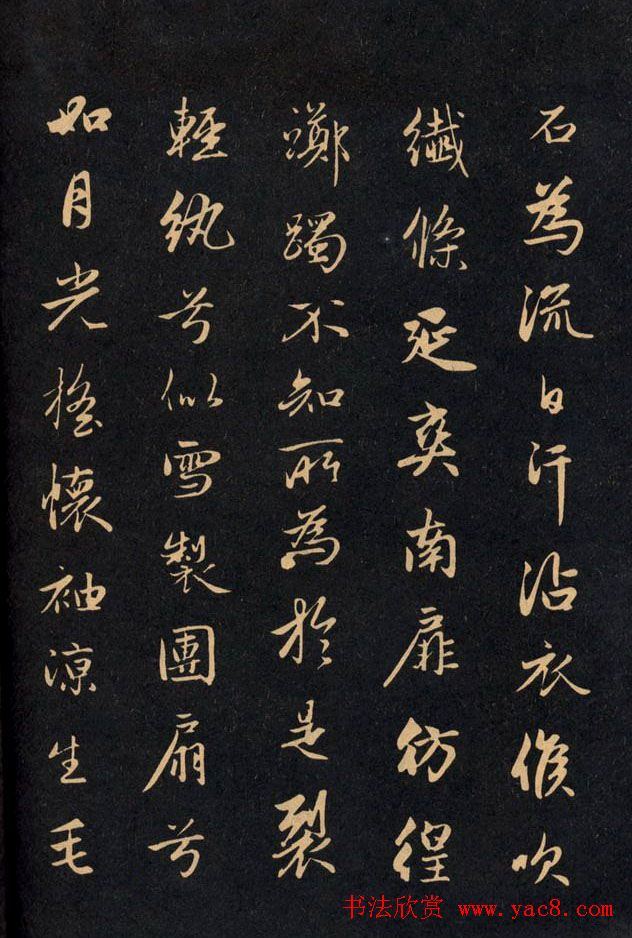 石為流白汗沾衣候吹
纖條延爽南扉彷徨
躑躅不知所為於是裂
輕紈兮似雪製團扇兮
如月光搖懷袖涼生毛
书法欣赏 www.yac8.com